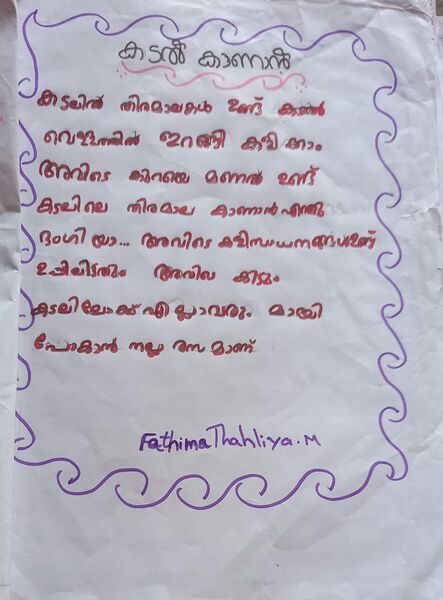 കടൽ കാണാൻ
കടലിൽ തിരമാലകൾ ഉണ്ട് കടൽ
വെള്ളത്തിൽ ഇറങ്ങി കളിക്കാം
അവിടെ കുറയെ മണൽ ഉണ്ട്
കടലിലെ തിരമാല കാണാൻ എന്തു
ഭംഗിയാ... അവിടെ കളിസാധനങ്ങൾഉണ്ട്
ഉപ്പിലിട്ടതും അവിടെ കിട്ടും
കടലിലോക്ക് എല്ലാവരും മായി
പോകാൻ നല്ല രസമാണ്
Fathima Thahliya.M